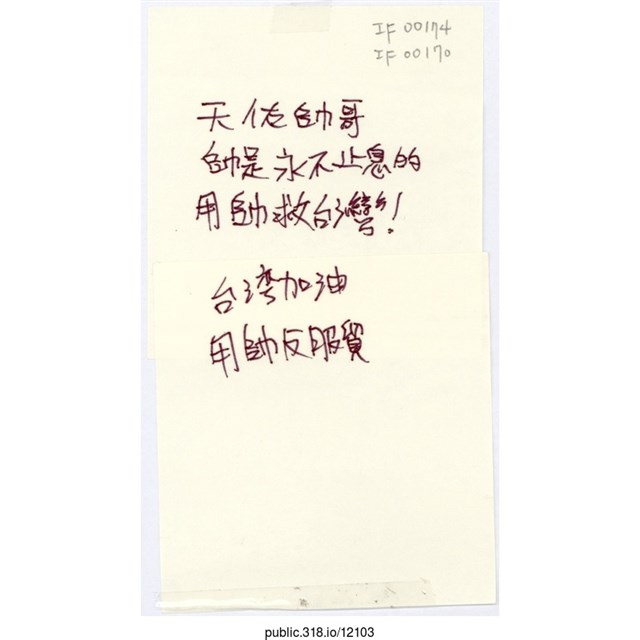 IF 00174
IF 00170
天佑帥哥
帥是永不止息的
用帥救台灣!
台湾加油
用帥反服貿
public.318.io/12103